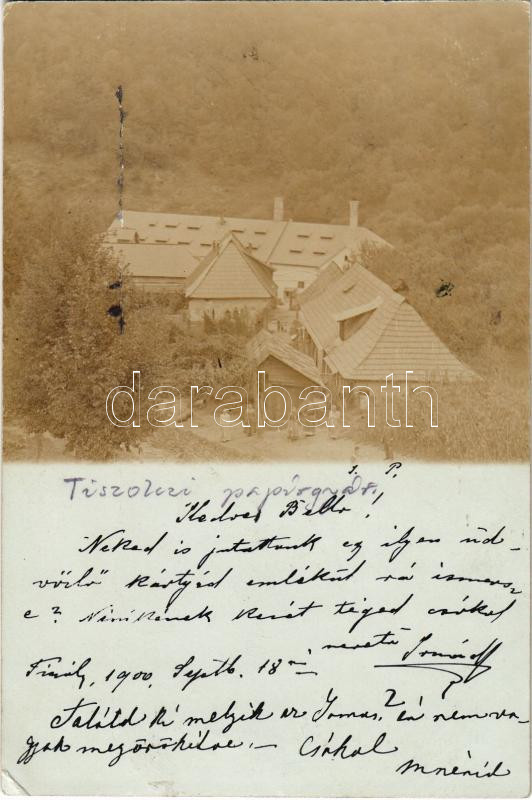 darabanth
Tiszolczi papírgyár.
I. P.
Kedves Bella!
Neked is jutattunk egy ilyen üd-
vözlő kártyád emlékül rá ismersz
e? Ninikének kezét téged csókol
szerető
Tiszolcz, 1900, Septb. 18án
Találd ki melyik az Irmus? én nem va-
gyok megörökítve. – Csókol